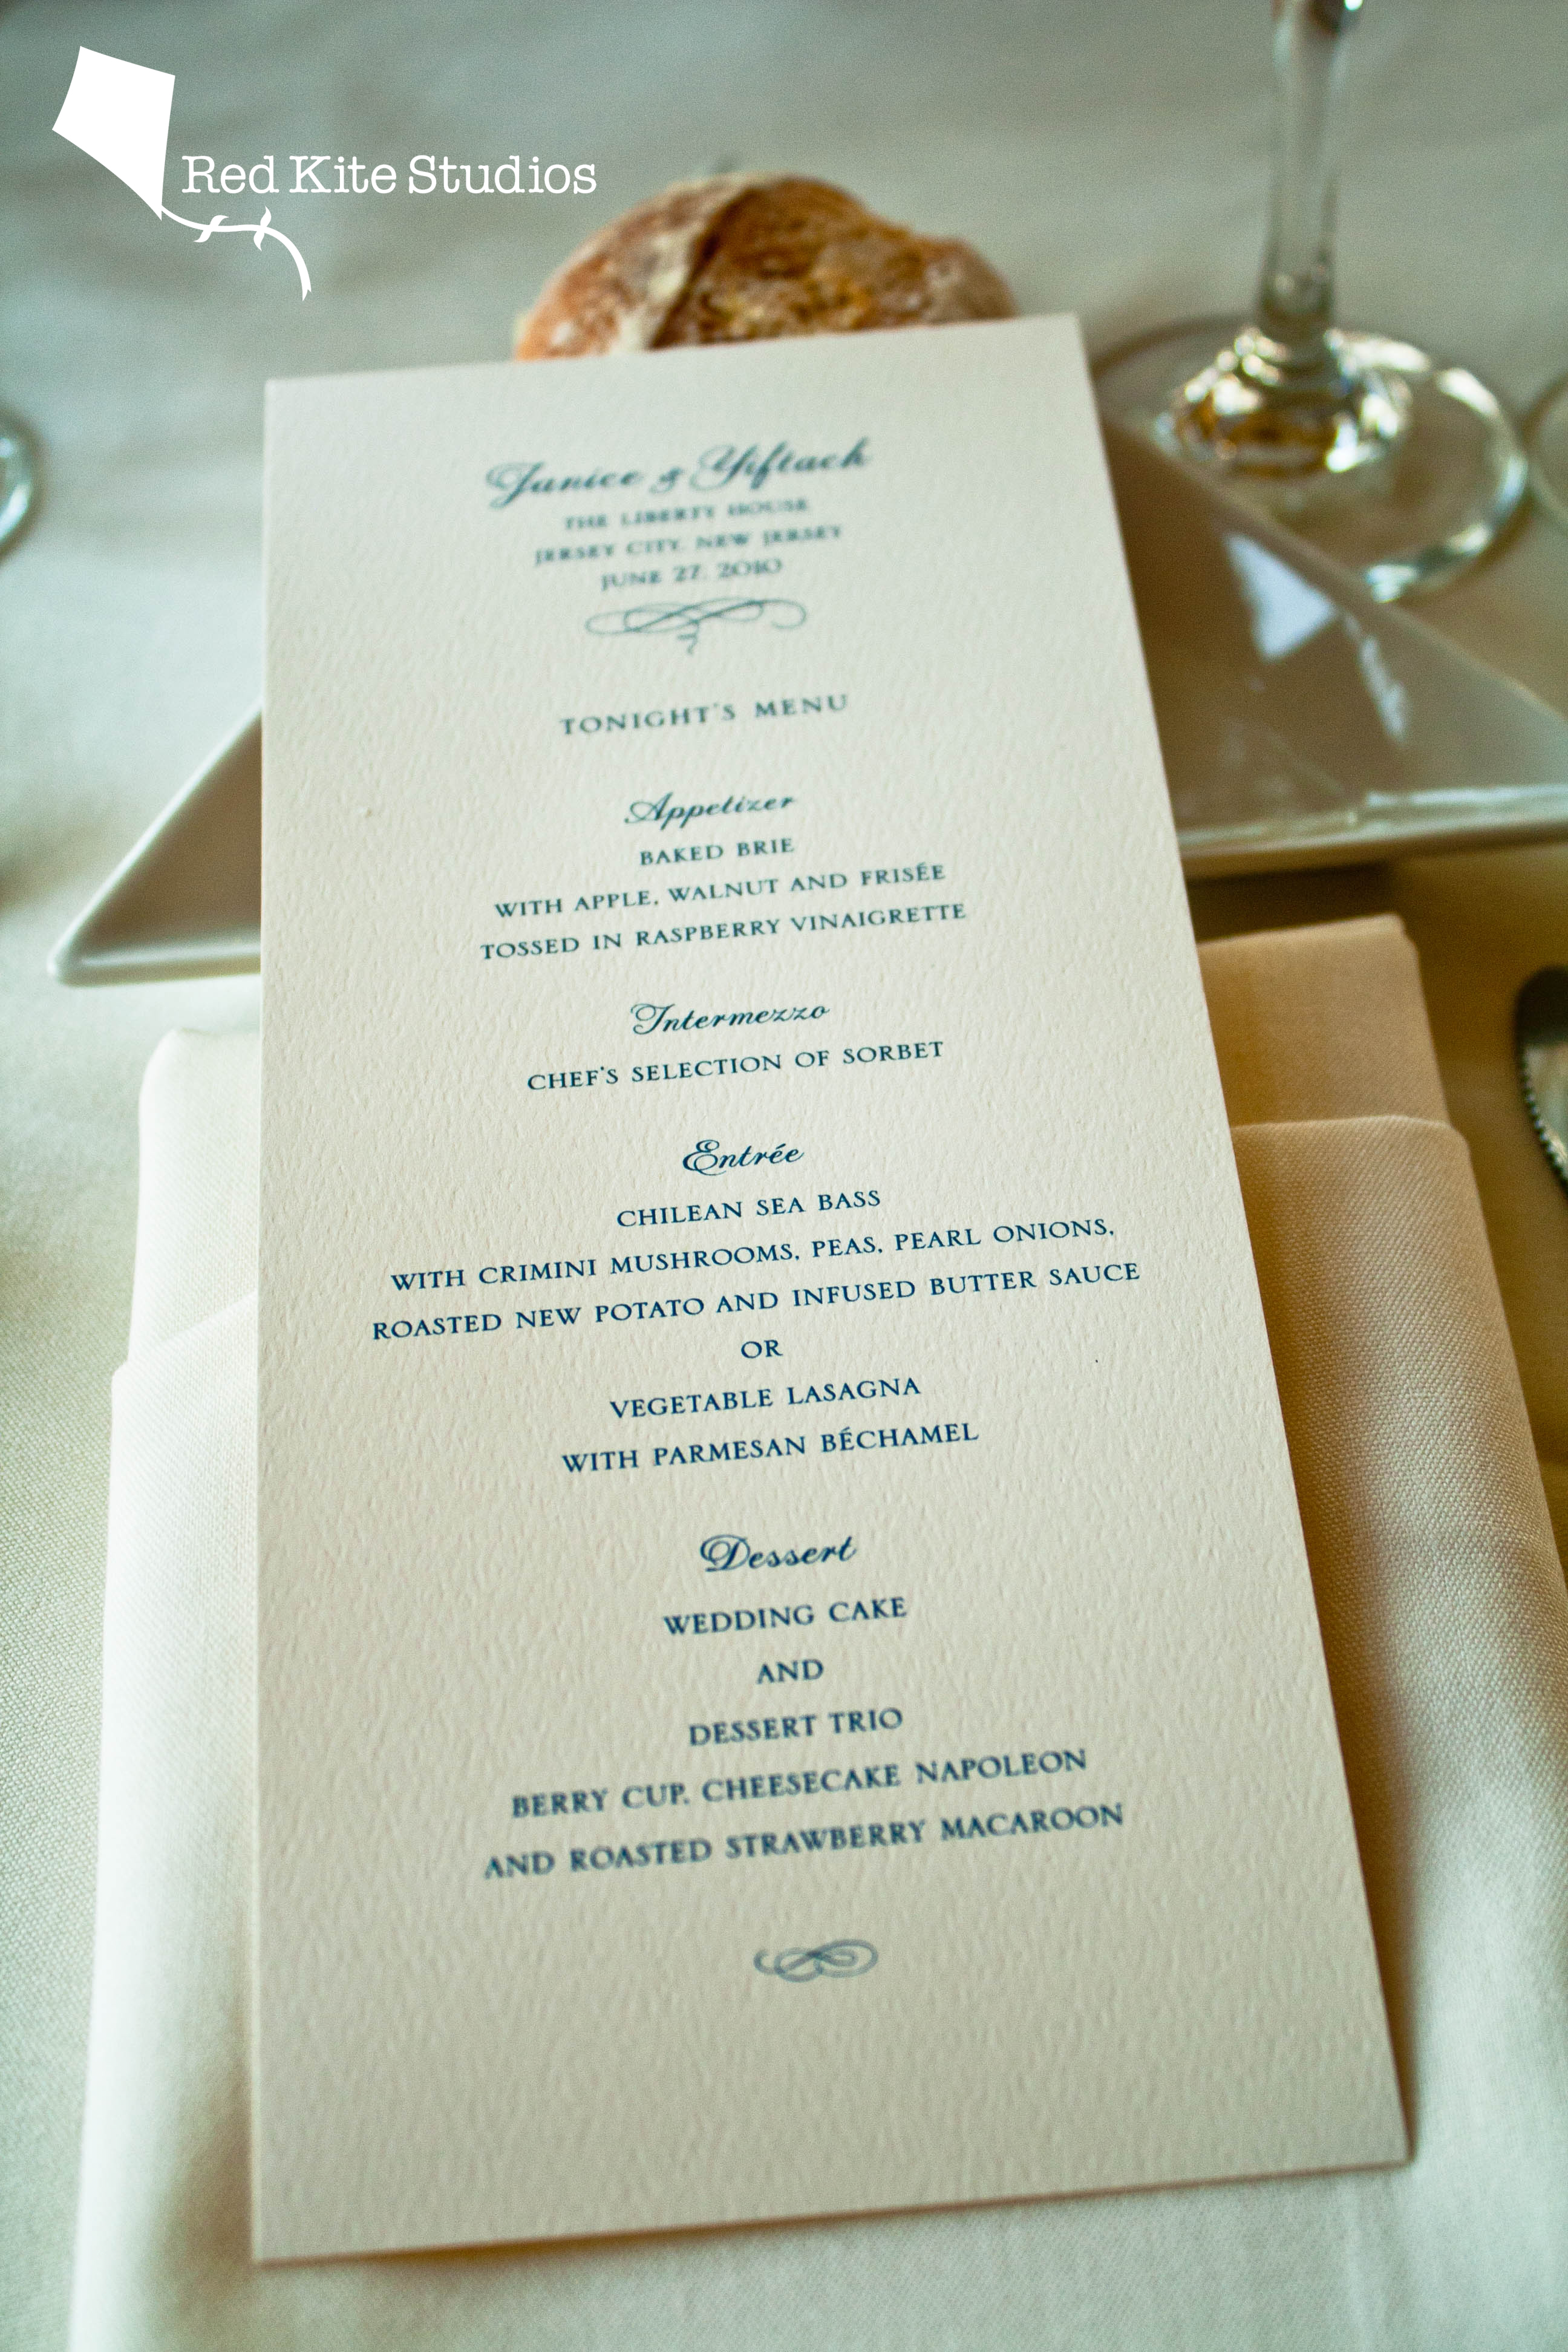 Red Kite Studios
Janice & Yiftach
THE LIBERTY HOUSE
JERSEY CITY, NEW JERSEY
JUNE 27, 2010
TONIGHT'S MENU
Appetizer
BAKED BRIE
WITH APPLE, WALNUT AND FRISÉE
TOSSED IN RASPBERRY VINAIGRETTE
Intermezzo
CHEF'S SELECTION OF SORBET
Entrée
CHILEAN SEA BASS
WITH CRIMINI MUSHROOMS, PEAS, PEARL ONIONS,
ROASTED NEW POTATO AND INFUSED BUTTER SAUCE
OR
VEGETABLE LASAGNA
WITH PARMESAN BÉCHAMEL
Dessert
WEDDING CAKE
AND
DESSERT TRIO
BERRY CUP, CHEESECAKE NAPOLEON
AND ROASTED STRAWBERRY MACAROON